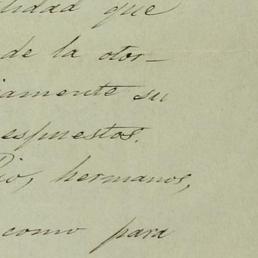 lidad que
de la otor-
iamente su
espuestos.
Pio, hermanos,
como para